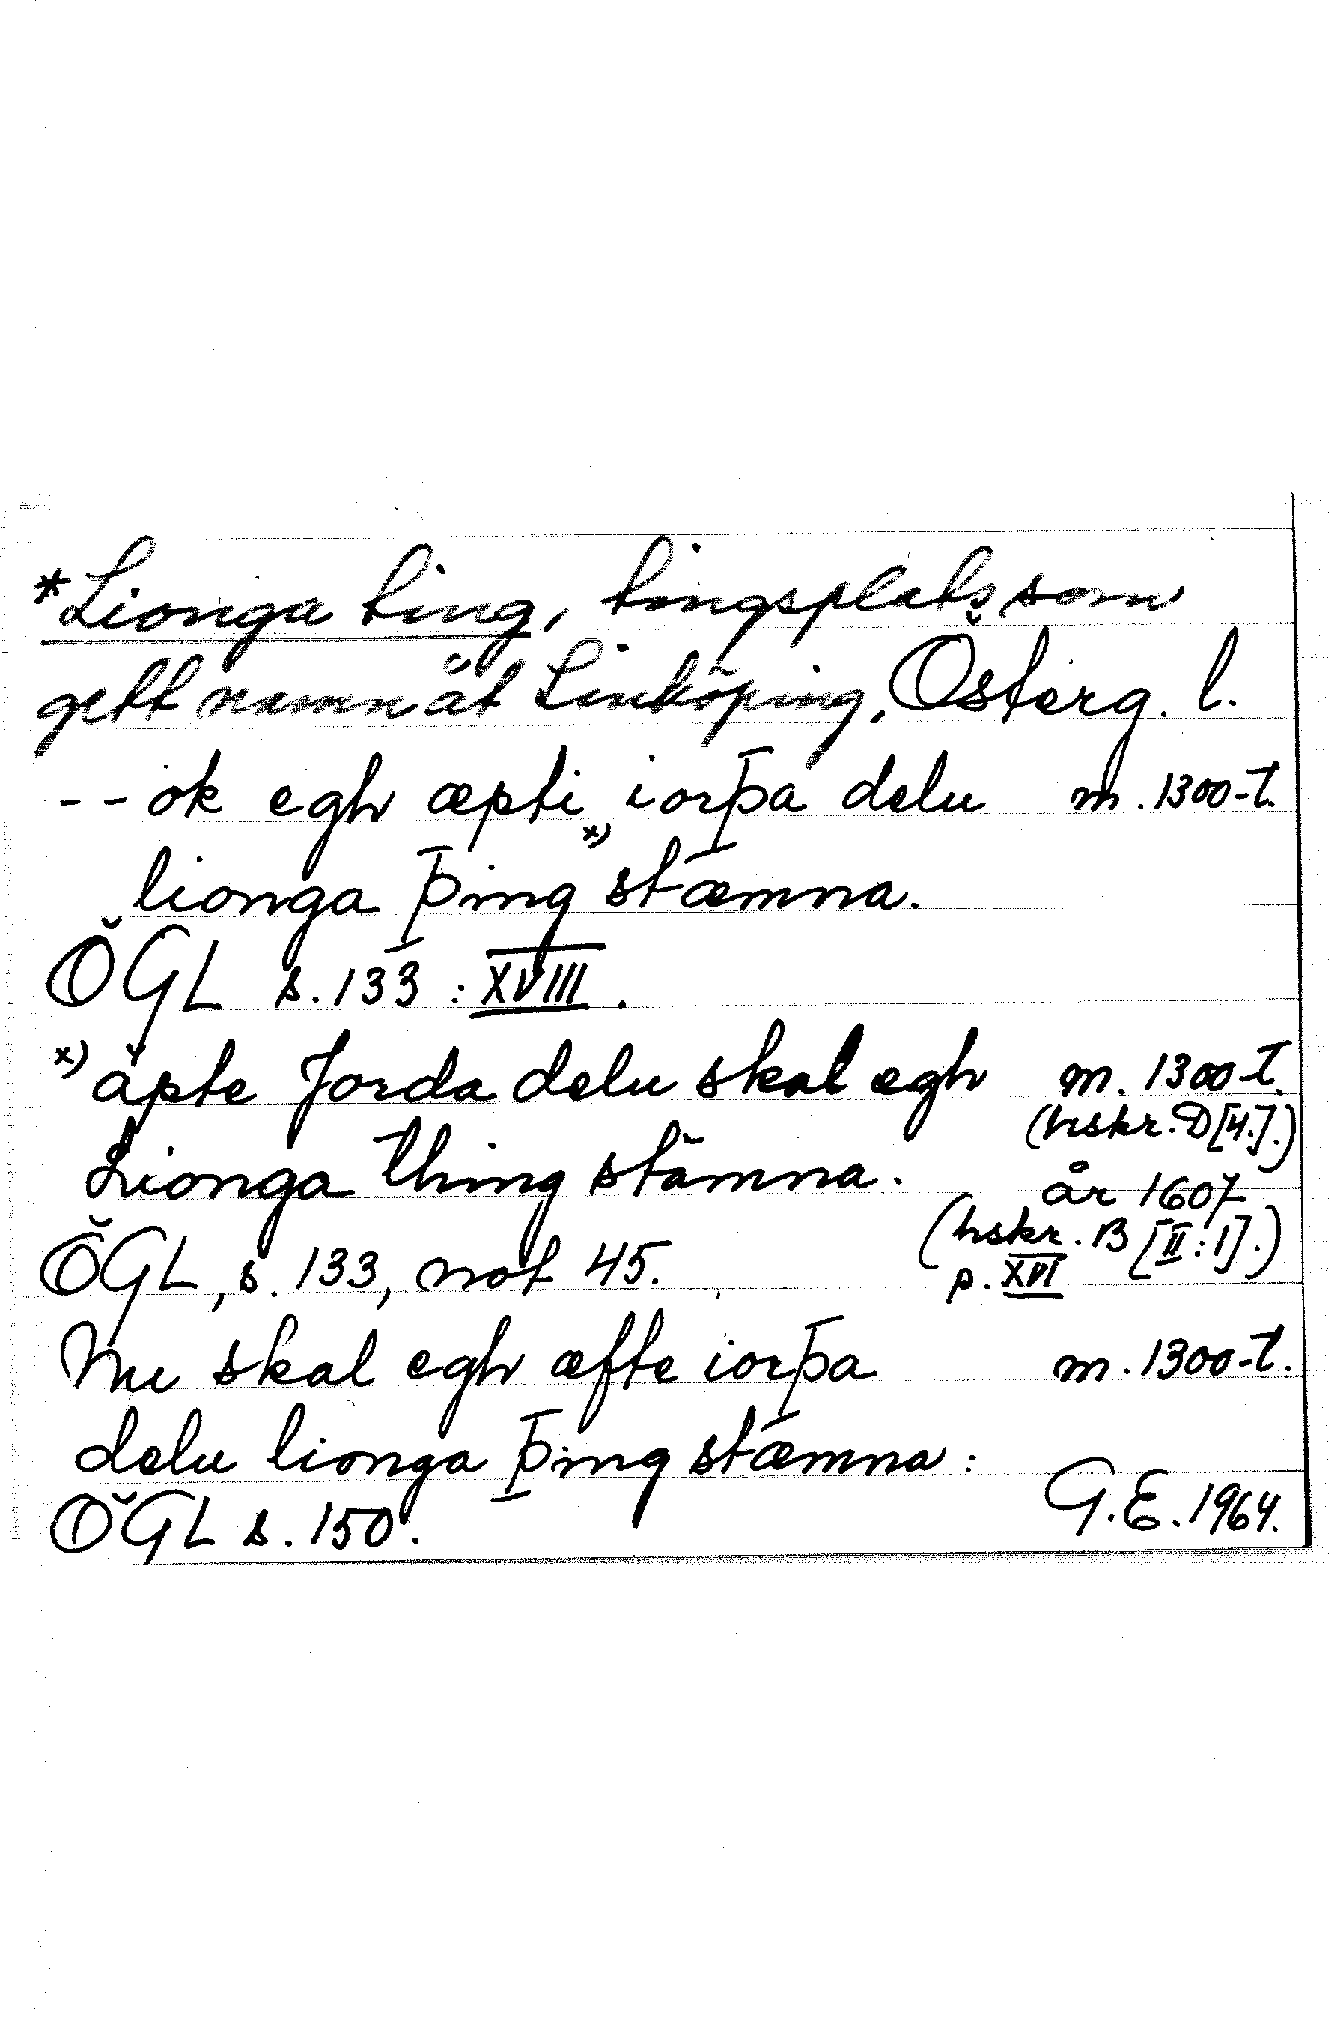 *Lionga ting, tingsplats som
gett namn åt Linköping, Österg. l.
-- ok egh æpti iorþa delu m. 1300-t.
lionga þing x) stæmna.
ÖGL s. 133 : XVIII.
x) äpte Jorda delu skal egh m. 1300-t.
(hskr. D [4.].)
Lionga thing stämna. år 1607
(hskr. B [II:1].)
ÖGL, s. 133, not 45. p. XVI
Nu skal egh æfte iorþa m. 1300-t.
delu lionga þing stæmna :
ÖGL s. 150. G.E. 1964.